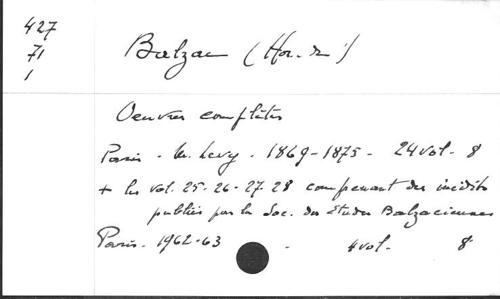 427
71
1
Balzac (Hon. de)
Oeuvres complètes
Paris - M. Levy - 1869-1875 - 24 vol. 8
+ les vol. 25-26-27-28 comprenant des inédits
publiés par la Soc. des Etudes Balzaciennes
Paris. 1962-63 - 4 vol. 8